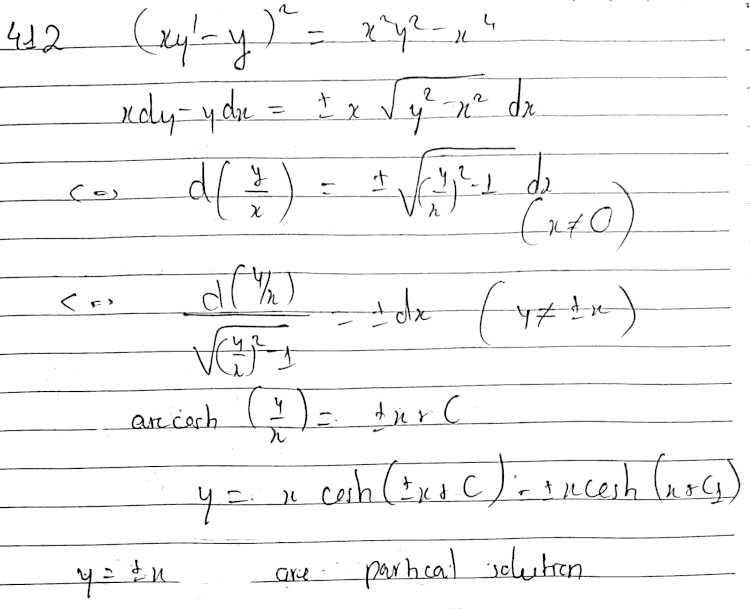 412 (xy' - y)² = x²y² - x⁴
xdy - ydx = ± x √(y² - x²) dx
<=> d(y/x) = ± √((y/x)² - 1) dx
(x ≠ 0)
<=> d(y/x) / √((y/x)² - 1) = ± dx (y ≠ ± x)
arc cosh (y/x) = ± x + C
y = x cosh (± x + C) = ± x cosh (x + C₁)
y = ± x are partical solution